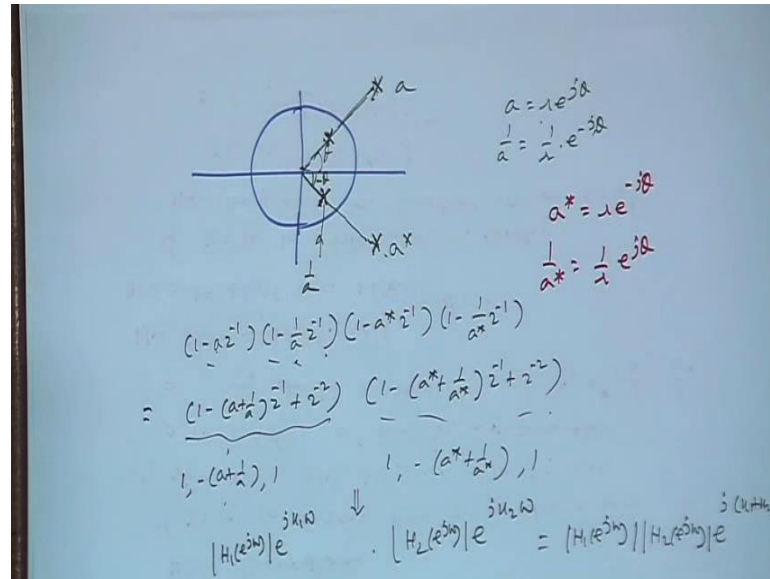 a
a = re^{jθ}
1/a = 1/r · e^{-jθ}
a* = re^{-jθ}
1/a* = 1/r e^{jθ}
a*
1/a
(1-az^{-1})(1-1/a z^{-1})(1-a*z^{-1})(1-1/a* z^{-1})
= (1-(a+1/a)z^{-1}+z^{-2}) (1-(a*+1/a*)z^{-1}+z^{-2})
1, -(a+1/a), 1    1, -(a*+1/a*), 1
⇓
|H₁(e^{jω})|e^{jK₁ω} · |H₂(e^{jω})|e^{jK₂ω} = |H₁(e^{jω})||H₂(e^{jω})|e^{j(K₁+K₂